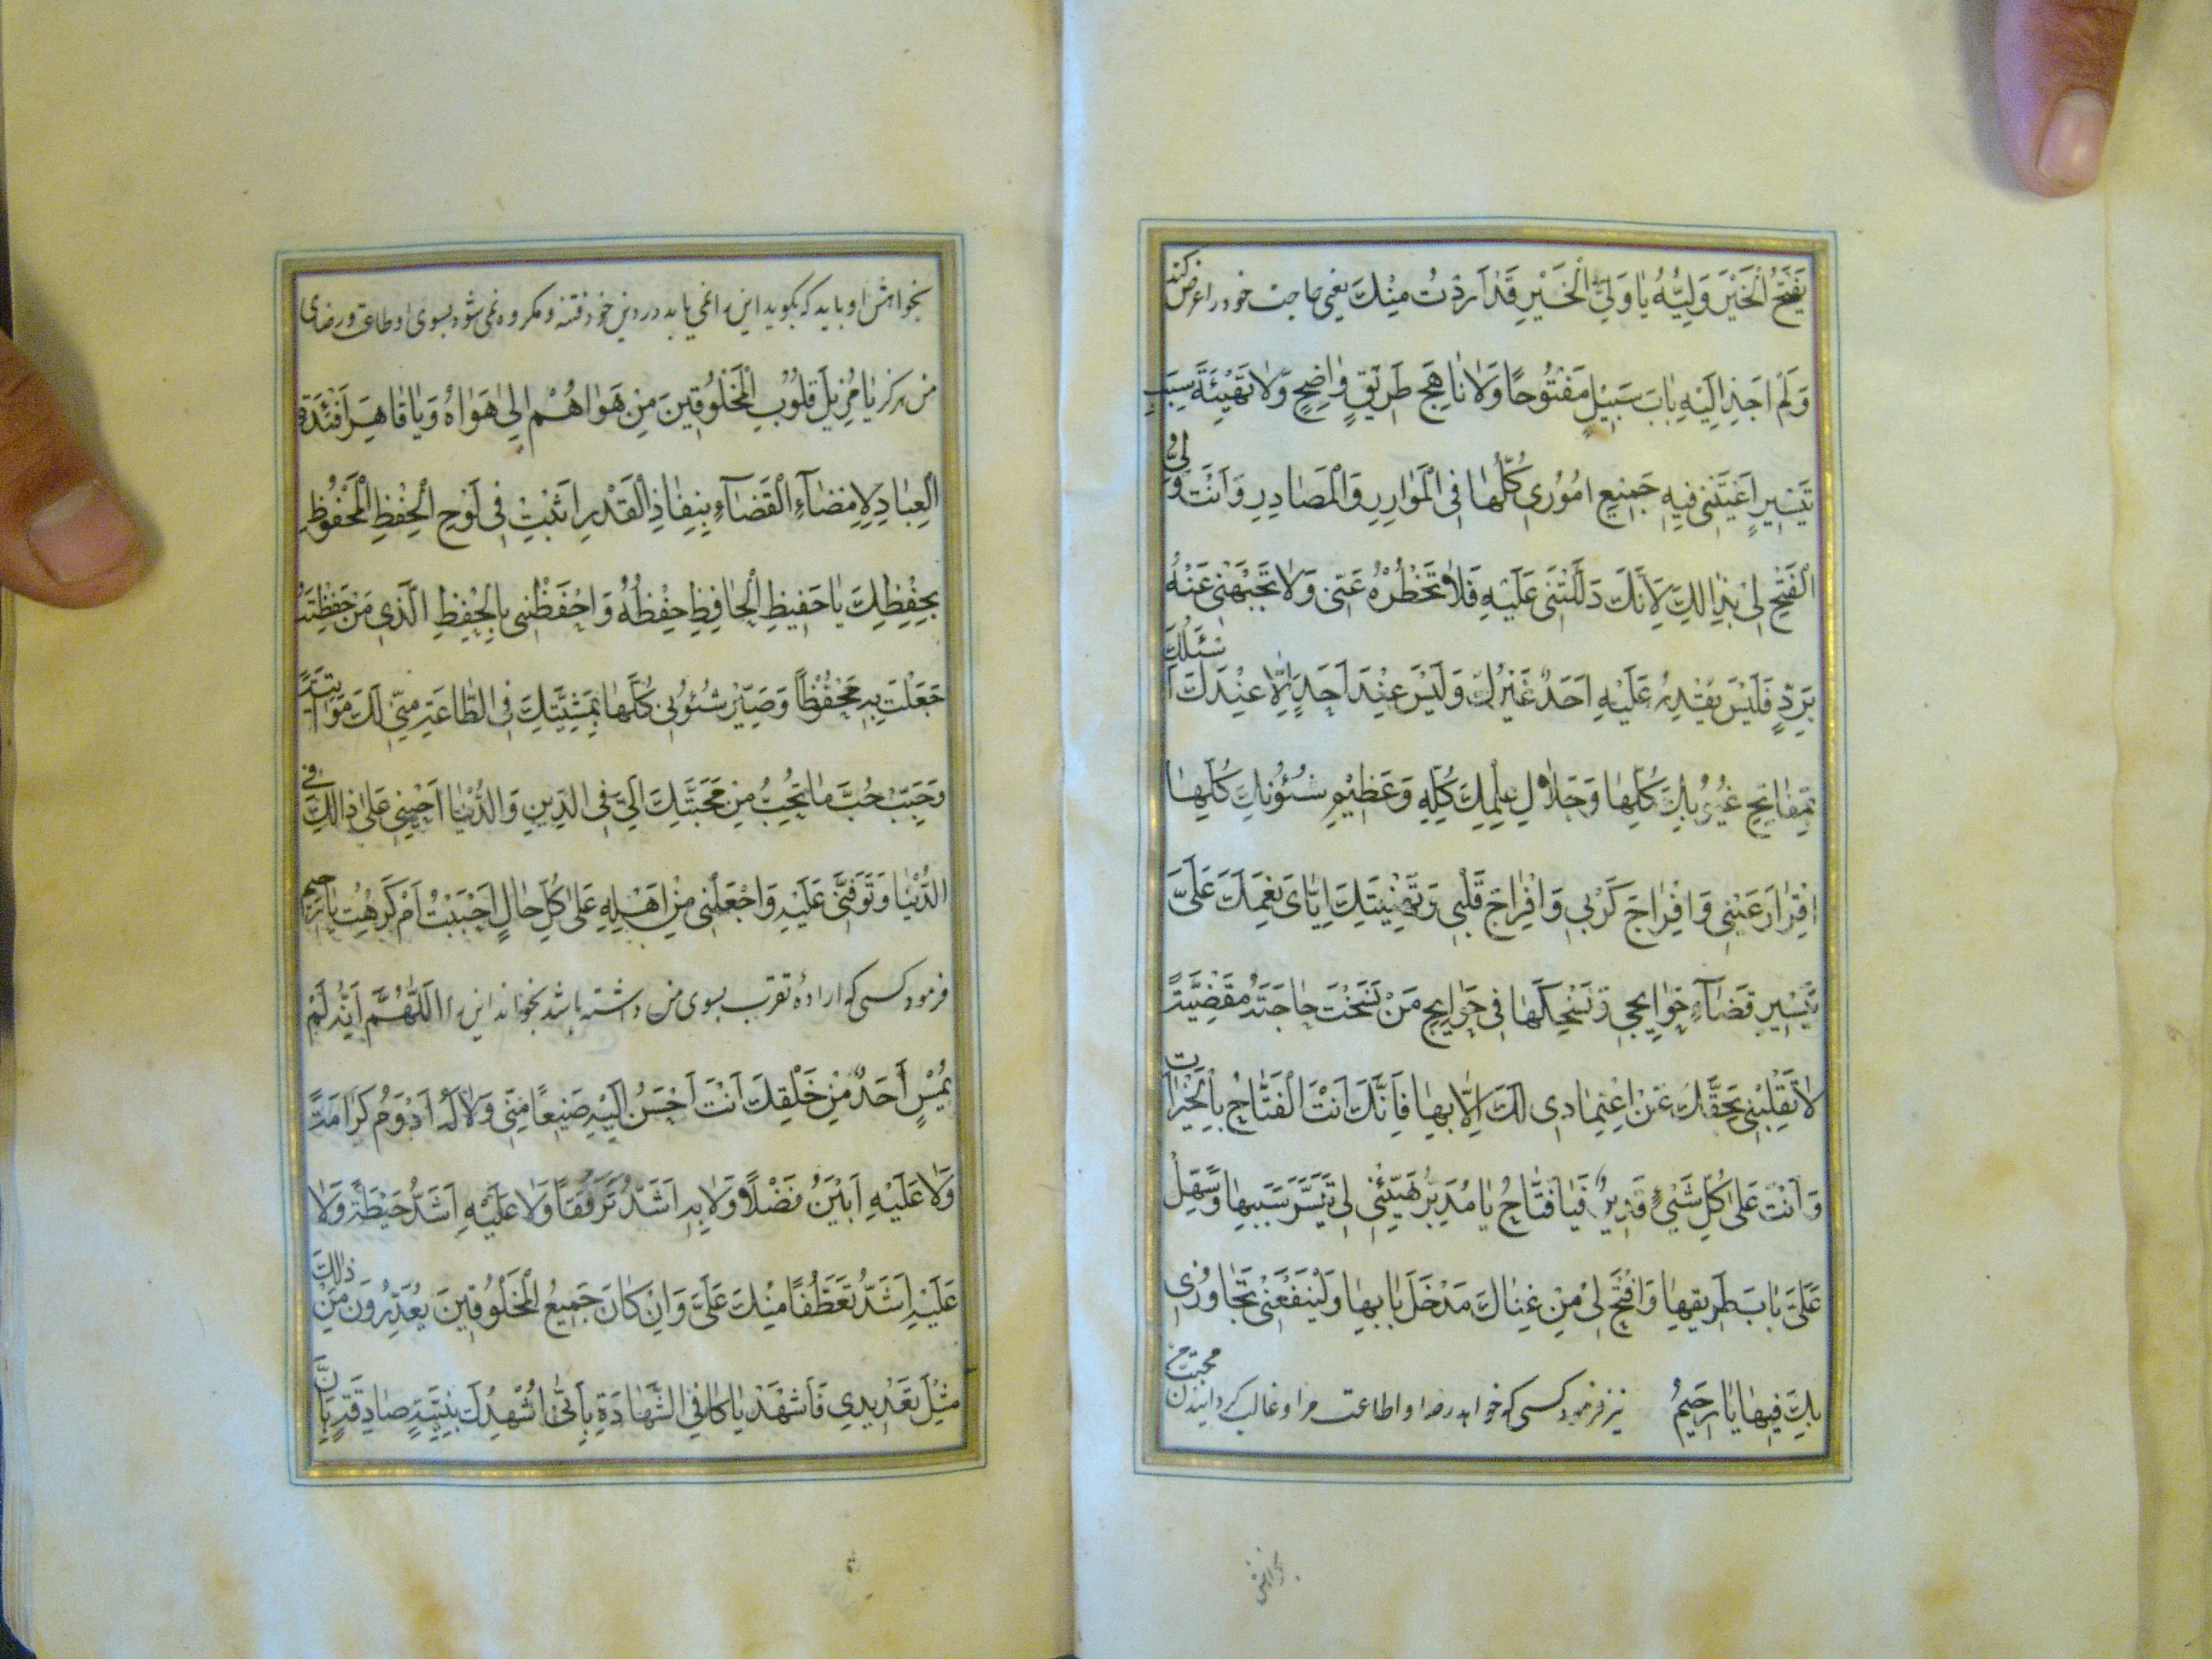 يَفْتَحُ الْخَيْرَ وَلِيُّهُ يَا وَلِيَّ الْخَيْرِ قَدْ اَرَدْتُ مِنْكَ يعنی حاجت خود را عرض کند
وَلَمْ اَجِدْ اِلَيْهِ بَابَ سَبِيْلٍ مَفْتُوْحًا وَلَا نَاهِجَ طَرِيْقٍ وَاضِحٍ وَلَا تَهْيِئَةَ سَبَبٍ
تَيْسِيْرٍ اَعْيَتْنِى فِيهِ جَمِيْعِ اُمُوْرِى كُلُّهَا فِى الْمَوَارِدِ وَالْمَصَادِرِ وَاَنْتَ وَلِىُّ
الْفَتْحِ لِىْ بِذَالِكَ لِاَنَّكَ دَلَلْتَنِى عَلَيْهِ فَلَا تَحْظُرْهُ عَنِّى وَلَا تَجْبَهْنِى عَنْهُ
بِرَدٍّ فَلَيْسَ يَقْدِرُ عَلَيْهِ اَحَدٌ غَيْرُكَ وَلَيْسَ عِنْدَ اَحَدٍ اِلَّا عِنْدَكَ اَسْئَلُكَ
بِمَفَاتِحِ غُيُوْبِكَ كُلِّهَا وَجَلَالِ عِلْمِكَ كُلِّهِ وَعَظِيْمِ شُئُوْنِكَ كُلِّهَا
اِقْرَارَ عَيْنِى وَاِفْرَاجَ كَرْبِى وَاِفْرَاحَ قَلْبِى وَتَهْنِيَتَكَ اِيَّاىَ نِعَمَكَ عَلَىَّ
بِتَيْسِيْرِ قَضَآءِ حَوَآئِجِى وَنَسْخِكَهَا فِى حَوَآئِجِ مَنْ نَسَخْتَ حَاجَتَهُ مَقْضِيَّةً
لَا تَقْلِبْنِى بِحَقِّكَ عَنْ اِعْتِمَادِى لَكَ اِلَّا بِهَا فَاِنَّكَ اَنْتَ الْفَتَّاحُ بِالْخَيْرَاتِ
وَاَنْتَ عَلَى كُلِّ شَىْءٍ قَدِيرٌ فَيَا فَتَّاحُ يَا مُدَبِّرُ هَيِّئْنِى لِى تَيَسُّرَ سَبَبِهَا وَسَهِّلْ
عَلَىَّ بَابَ طَرِيقِهَا وَافْتَحْ لِىْ مِنْ غِنَاكَ مَدْخَلَ بَابِهَا وَلْيَنْفَعْنِى تَجَاوُزِى
بِكَ فِيْهَا يَا رَحِيمُ نیز فرمود کسی که خواهد رضا و اطاعت مرا و غالب گردانیدن محبت من
بخواهش
بخواهش او باید که بگوید این را نمی یابد در دین خود فتنه و مکروه نمی شود بسوی او طاعت و رضای
من هرگز يَا مُزِيلَ قُلُوْبِ الْمَخْلُوْقِينَ مِنْ هَوَاهُمْ اِلَى هَوَاهُ وَيَا قَاهِرَ اَفْئِدَةِ
الْعِبَادِ لِاِمْضَآءِ الْقَضَآءِ بِنِفَاذِ الْقَدْرِ اَثْبِتْ فِى لَوْحِ الْحِفْظِ الْمَحْفُوْظِ
بِحِفْظِكَ يَا حَفِيظِ الْحَافِظِ حِفْظُهُ وَاحْفَظْنِى بِالْحِفْظِ الَّذِى مَنْ حَفِظْتَهُ
جَعَلْتَ بِهِ مَحْفُوْظًا وَصَيِّرْ شُئُوْنِى كُلَّهَا بِمَشِيَّتِكَ فِى الطَّاعَةِ مِنِّى لَكَ مَوَاتِيَةً
وَحَبِّبْ حُبَّ مَا تُحِبُّ مِنْ مَحَبَّتِكَ اِلَىَّ فِى الدِّينِ وَالدُّنْيَا اَحْيِنِى عَلَى ذَالِكَ فِى
الدُّنْيَا وَتَوَفَّنِى عَلَيْهِ وَاجْعَلْنِى مِنْ اَهْلِهِ عَلَى كُلِّ حَالٍ اَحْبَبْتُ اَمْ كَرِهْتُ يَا رَحِيمُ
فرمود کسی که ارادهٔ تقرب بسوی من داشته باشد بخواند این را اَللَّهُمَّ اِنَّهُ لَمْ
يُمْسِ اَحَدٌ مِنْ خَلْقِكَ اَنْتَ اَحْسَنُ اِلَيْهِ صَنِيعًا مِنِّى وَلَا لَهُ اَدْوَمُ كَرَامَةً
وَلَا عَلَيْهِ اَبْيَنَ فَضْلًا وَلَا بِهِ اَشَدَّ تَرَفُّقًا وَلَا عَلَيْهِ اَشَدُّ حَيْطَةً وَلَا
عَلَيْهِ اَشَدُّ تَعَطُّفًا مِنْكَ عَلَىَّ وَاِنْ كَانَ جَمِيعُ الْمَخْلُوْقِينَ يُعَدِّدُونَ مِنْ ذٰلِكَ
مِثْلَ تَعْدِيدِى فَاَشْهَدْ يَا كَافِى الشَّهَادَةِ بِاَنِّى اُشْهِدُكَ بِنِيَّةٍ صَادِقَةٍ بِاَنَّ